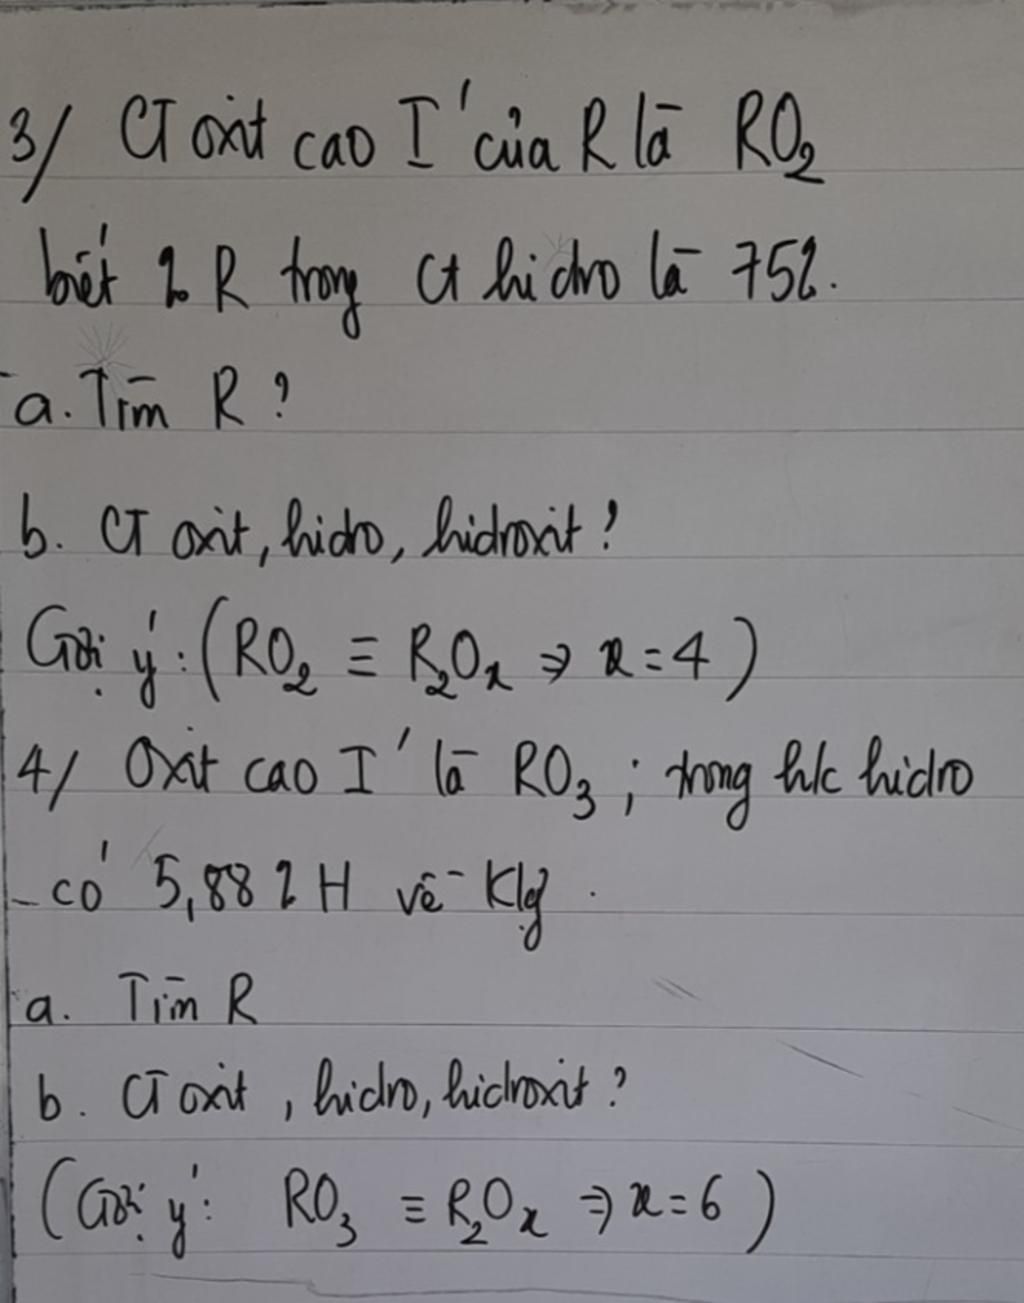 3/ CT oxit cao I' của R là RO₂
biết % R trong ct hidro là 75%.
a. Tìm R?
b. CT oxit, hidro, hidroxit?
Gợi ý: (RO₂ ≡ R₂Oₓ ⇒ x = 4)
4/ Oxit cao I' là RO₃; trong h/c hidro
có 5,88% H về Klg.
a. Tìm R
b. CT oxit, hidro, hidroxit?
(Gợi ý: RO₃ ≡ R₂Oₓ ⇒ x = 6)